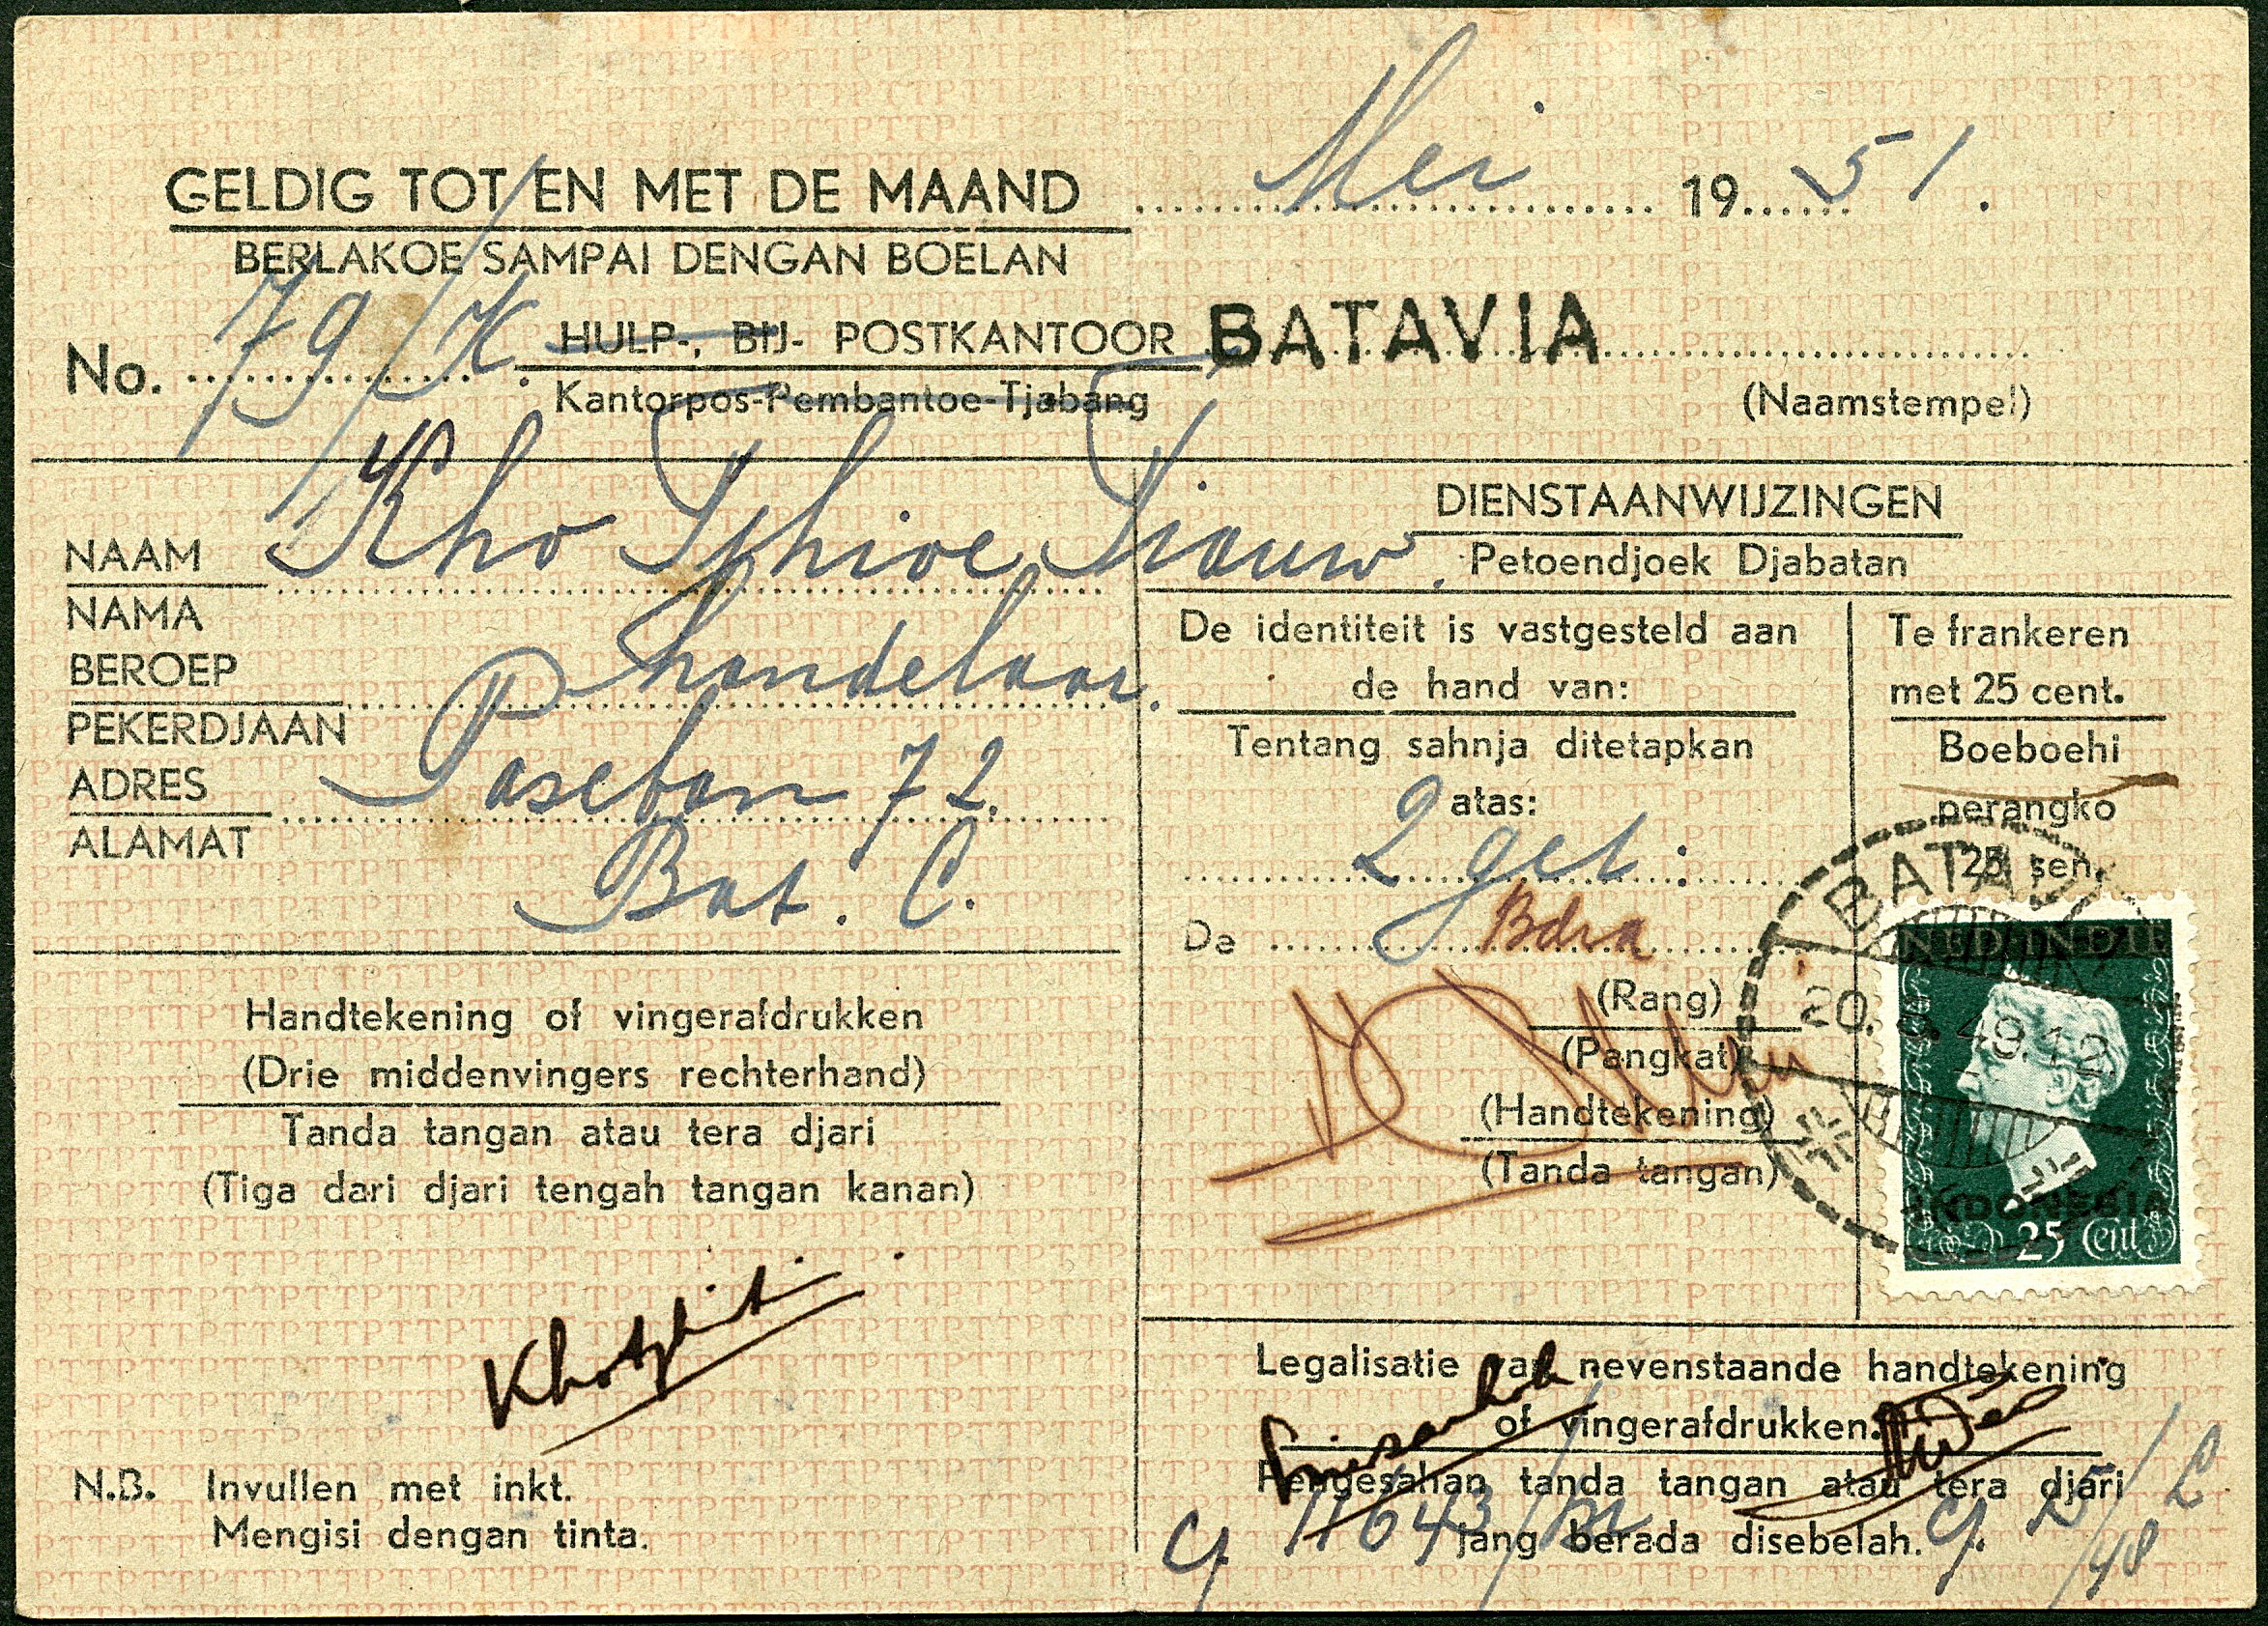 GELDIG TOT EN MET DE MAAND Mei 1951.
BERLAKOE SAMPAI DENGAN BOELAN
No. 79/K HULP-, BIJ- POSTKANTOOR BATAVIA
Kantorpos-Pembantoe-Tjabang (Naamstempel)
NAAM Kho Tjhioe Tiauw.
NAMA
BEROEP handelaar.
PEKERDJAAN
ADRES Paseban 72.
ALAMAT Bat. C.
Handtekening of vingerafdrukken
(Drie middenvingers rechterhand)
Tanda tangan atau tera djari
(Tiga dari djari tengah tangan kanan)
N.B. Invullen met inkt.
Mengisi dengan tinta.
DIENSTAANWIJZINGEN
Petoendjoek Djabatan
De identiteit is vastgesteld aan
de hand van:
Tentang sahnja ditetapkan
atas:
2 get:
De Bdra
(Rang)
(Pangkat)
(Handtekening)
(Tanda tangan)
Te frankeren
met 25 cent.
Boeboehi
perangko
25 sen.
BATAVIA
NED. INDIE
INDONESIA
25 Cent
Legalisatie van nevenstaande handtekening
of vingerafdrukken.
Pengesahan tanda tangan atau tera djari
jang berada disebelah.
PTT